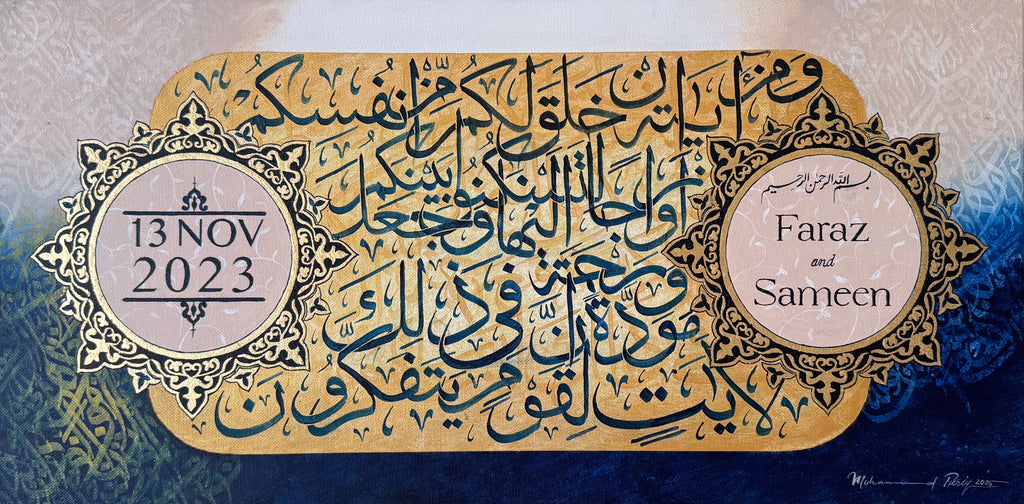 ومن آياته خلق لكم من أنفسكم
أزواجا لتسكنوا إليها وجعل بينكم
مودة ورحمة إن في ذلك
لآيت لقوم يتفكرون
بسم الله الرحمن الرحيم
Faraz
and
Sameen
13 NOV
2023
2025